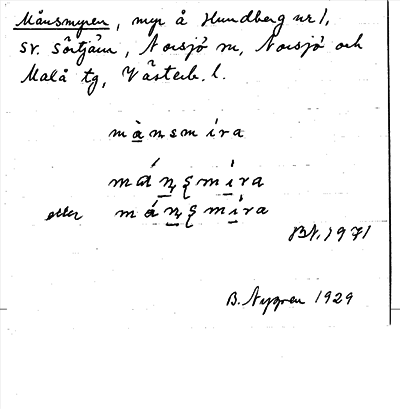 Månsmyren, myr å Hundberg nr 1,
sv. Sörtjärn, Norsjö sn, Norsjö och
Malå tg, Västerb. l.
mànsmíra
mán̥ʂmíra
eller mán̥ʂmíra
BN, 1971
B. Nygren 1929